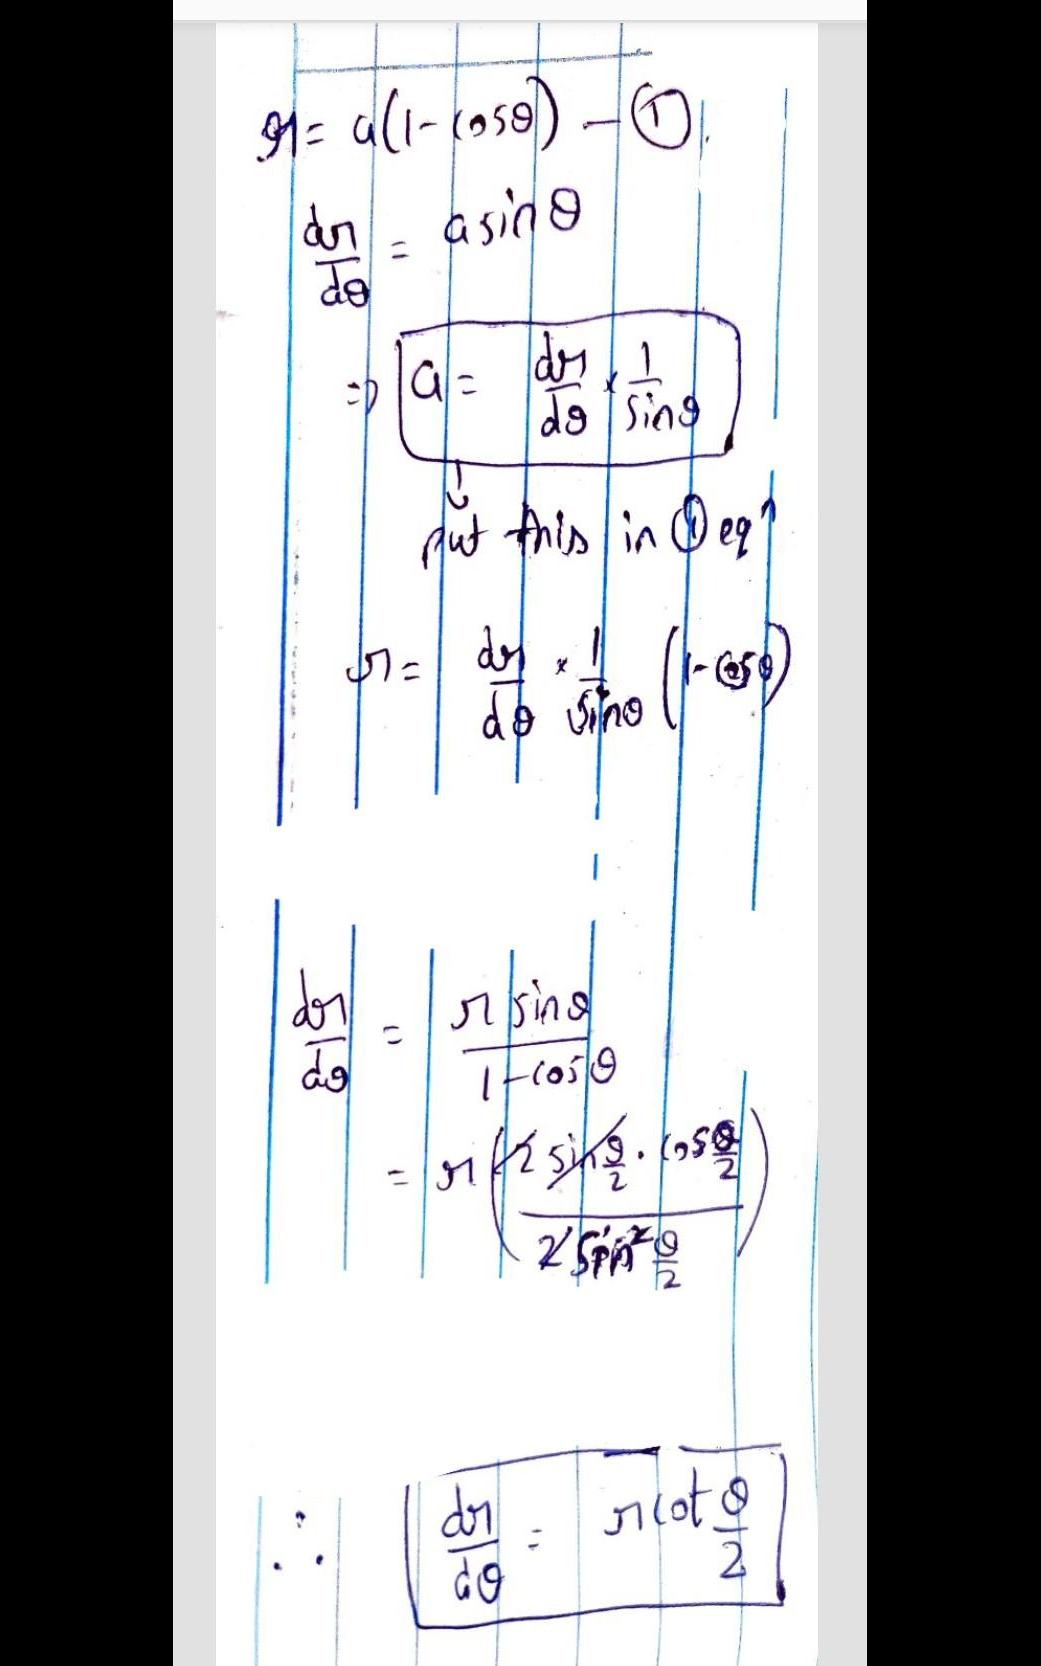 r = a(1-cosθ) - ①.
dr/dθ = a sinθ
⇒ a = dr/dθ × 1/sinθ
put this in ① eqⁿ
r = dr/dθ × 1/sinθ (1-cosθ)
dr/dθ = r sinθ / 1-cosθ
= r (2 sin θ/2 · cos θ/2 / 2 sin² θ/2)
∴ dr/dθ = r cot θ/2